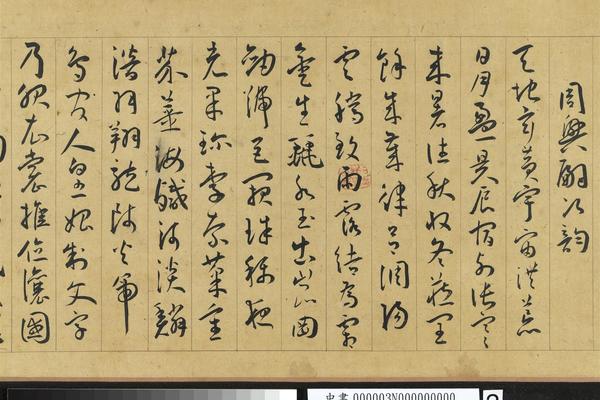 周興嗣次韻
天地玄黃宇宙洪荒
日月盈昃辰宿列張寒
來暑往秋收冬藏閏
餘成歲律呂調陽
雲騰致雨露結為霜
金生麗水玉出崑岡
劍號巨闕珠稱夜
光果珍李柰菜重
芥薑海鹹河淡鱗
潛羽翔龍師火帝
鳥官人皇始制文字
乃服衣裳推位讓國
000003N000000000